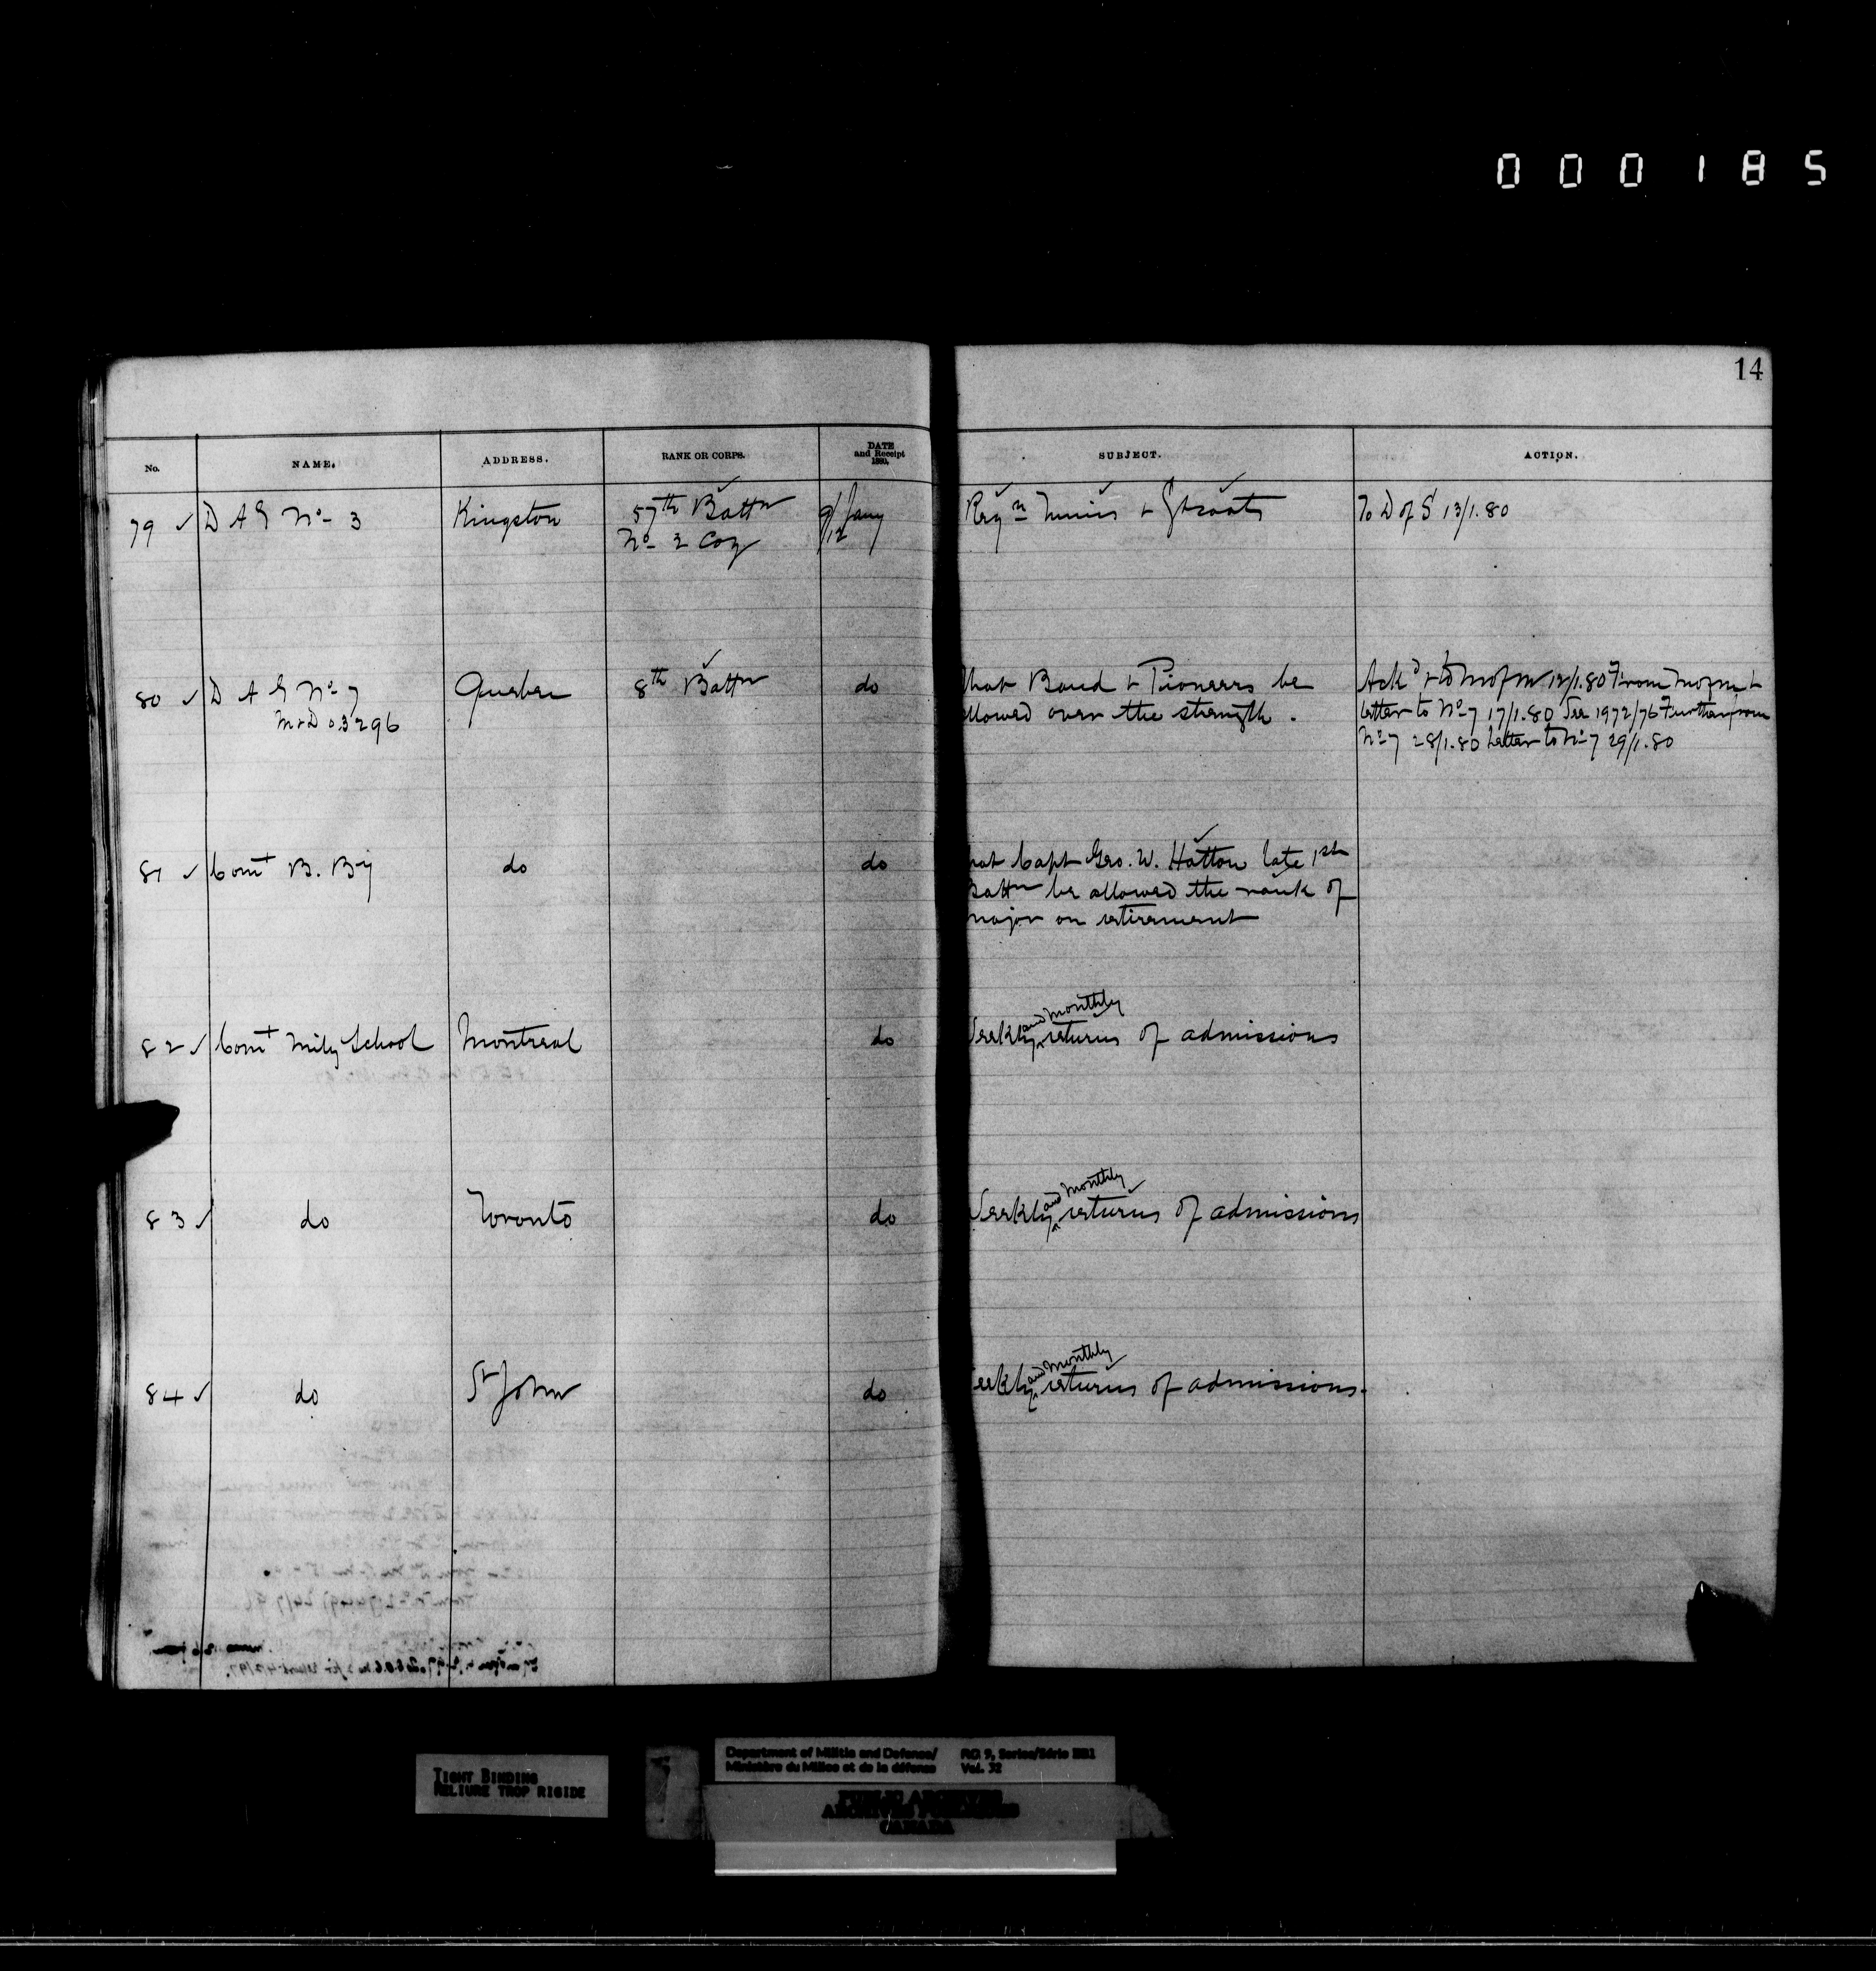 000185
14
No. NAME. ADDRESS. RANK OR CORPS. DATE and Receipt 1880. SUBJECT. ACTION.
79 ✓ D A G No 3 Kingston 57th Battn 9/12 Jany Reqn Tunics & G To D of S 13/1.80
No 2 Coy
80 ✓ D A G No 7 Quebec 8th Battn do that Band & Pioneers be Ackd & to M of M 12/1.80 From M of M &
M & D 03296 allowed over the strength. letter to No 7 17/1.80 See 1972/76 Further from
No 7 28/1.80 Letter to No 7 29/1.80
81 ✓ Comt B. By do do hat Capt Geo. W. Hatton late 1st
Battn be allowed the rank of
major on retirement
82 ✓ Comt Mily School Montreal do Weekly and monthly returns of admissions
83 ✓ do Toronto do Weekly and monthly returns of admissions
84 ✓ do St John do eekly and monthly returns of admissions.
TIGHT BINDING
RELIURE TROP RIGIDE
Department of Militia and Defence/ RG 9, Series/Série IIB1
Ministère du Milice et de la défense Vol. 32
PUBLIC ARCHIVES
ARCHIVES PUBLIQUES
CANADA